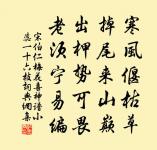 寒風偃枯草
掉尾來山巔
出柙勢可畏
老須寧易編
宋伯仁梅花喜神譜小
蕊一十六枝詞典網集